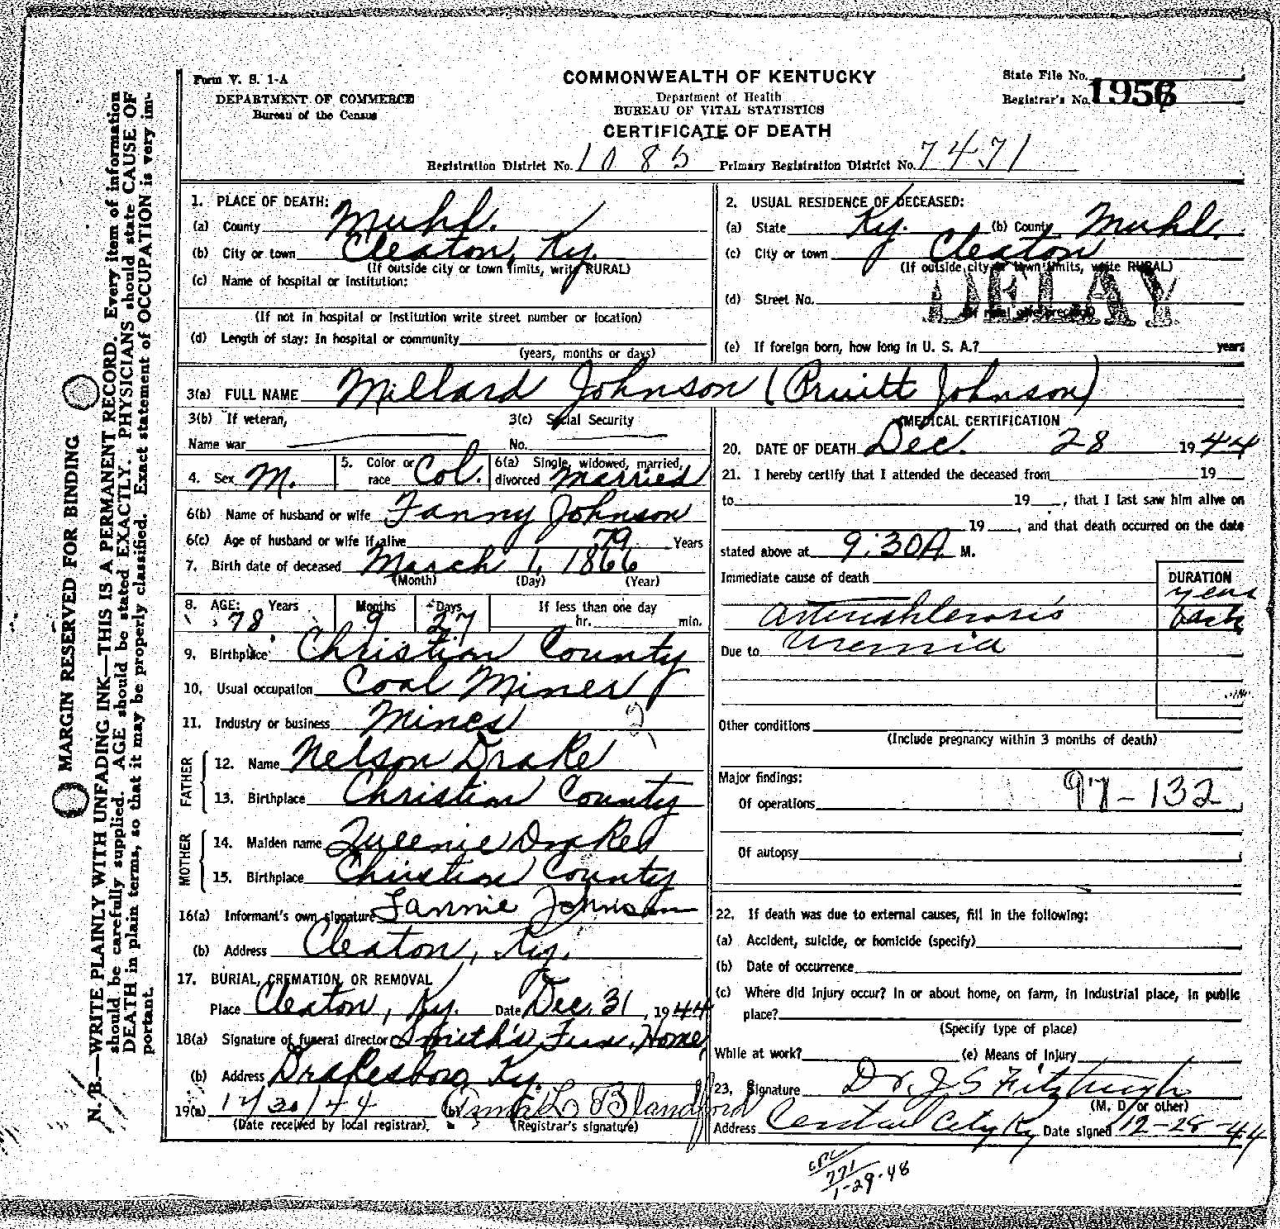 Form V. S. 1-A
DEPARTMENT OF COMMERCE
Bureau of the Census
COMMONWEALTH OF KENTUCKY
Department of Health
BUREAU OF VITAL STATISTICS
CERTIFICATE OF DEATH
State File No.
Registrar's No. 1956
Registration District No. 1085 Primary Registration District No. 7471
1. PLACE OF DEATH:
(a) County Muhl.
(b) City or town Cleaton, Ky.
(If outside city or town limits, write RURAL)
(c) Name of hospital or institution:
(If not in hospital or institution write street number or location)
(d) Length of stay: In hospital or community
(years, months or days)
2. USUAL RESIDENCE OF DECEASED:
(a) State Ky. (b) County Muhl.
(c) City or town Cleaton
(If outside city or town limits, write RURAL)
DELAY
(d) Street No.
(e) If foreign born, how long in U. S. A.? years
3(a) FULL NAME Millard Johnson (Pruitt Johnson)
3(b) If veteran,
Name war
3(c) Social Security
No.
4. Sex M.
5. Color or race Col.
6(a) Single, widowed, married, divorced Married
6(b) Name of husband or wife Fanny Johnson
6(c) Age of husband or wife if alive 79 Years
7. Birth date of deceased March 1, 1866
(Month) (Day) (Year)
8. AGE: Years Months Days If less than one day
78 9 27 hr. min.
9. Birthplace Christian County
10. Usual occupation Coal Miner
11. Industry or business Mines
FATHER
12. Name Nelson Drake
13. Birthplace Christian County
MOTHER
14. Maiden name Queenie Drake
15. Birthplace Christian County
16(a) Informant's own signature Fannie Johnson
(b) Address Cleaton, Ky.
17. BURIAL, CREMATION, OR REMOVAL
Place Cleaton, Ky. Date Dec. 31, 1944
18(a) Signature of funeral director Smith's Fun. Home
(b) Address Drakesboro, Ky.
19(a) 12/30/44 (b) Blandford
(Date received by local registrar). (Registrar's signature)
MEDICAL CERTIFICATION
20. DATE OF DEATH Dec. 28 1944
21. I hereby certify that I attended the deceased from 19
to 19 , that I last saw him alive on
19 , and that death occurred on the date
stated above at 9:30A. M.
Immediate cause of death
DURATION
years
back
Arteriosklerosis
Due to Uremia
Other conditions
(Include pregnancy within 3 months of death)
Major findings:
Of operations 97-132
Of autopsy
22. If death was due to external causes, fill in the following:
(a) Accident, suicide, or homicide (specify)
(b) Date of occurrence
(c) Where did injury occur? In or about home, on farm, in industrial place, in public
place?
(Specify type of place)
While at work? (e) Means of Injury
23. Signature Dr. J S Fitzhugh
(M. D. or other)
Address Central City Ky Date signed 12-28-44
771
1-29-48
MARGIN RESERVED FOR BINDING
N. B.—WRITE PLAINLY WITH UNFADING INK—THIS IS A PERMANENT RECORD. Every item of information
should be carefully supplied. AGE should be stated EXACTLY. PHYSICIANS should state CAUSE OF
DEATH in plain terms, so that it may be properly classified. Exact statement of OCCUPATION is very im-
portant.